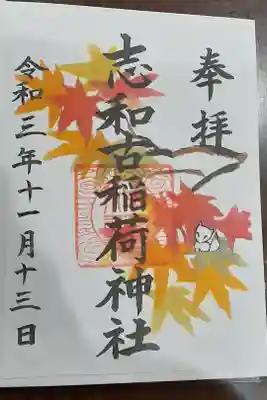 奉拝
志和古稲荷神社
令和三年十一月十三日